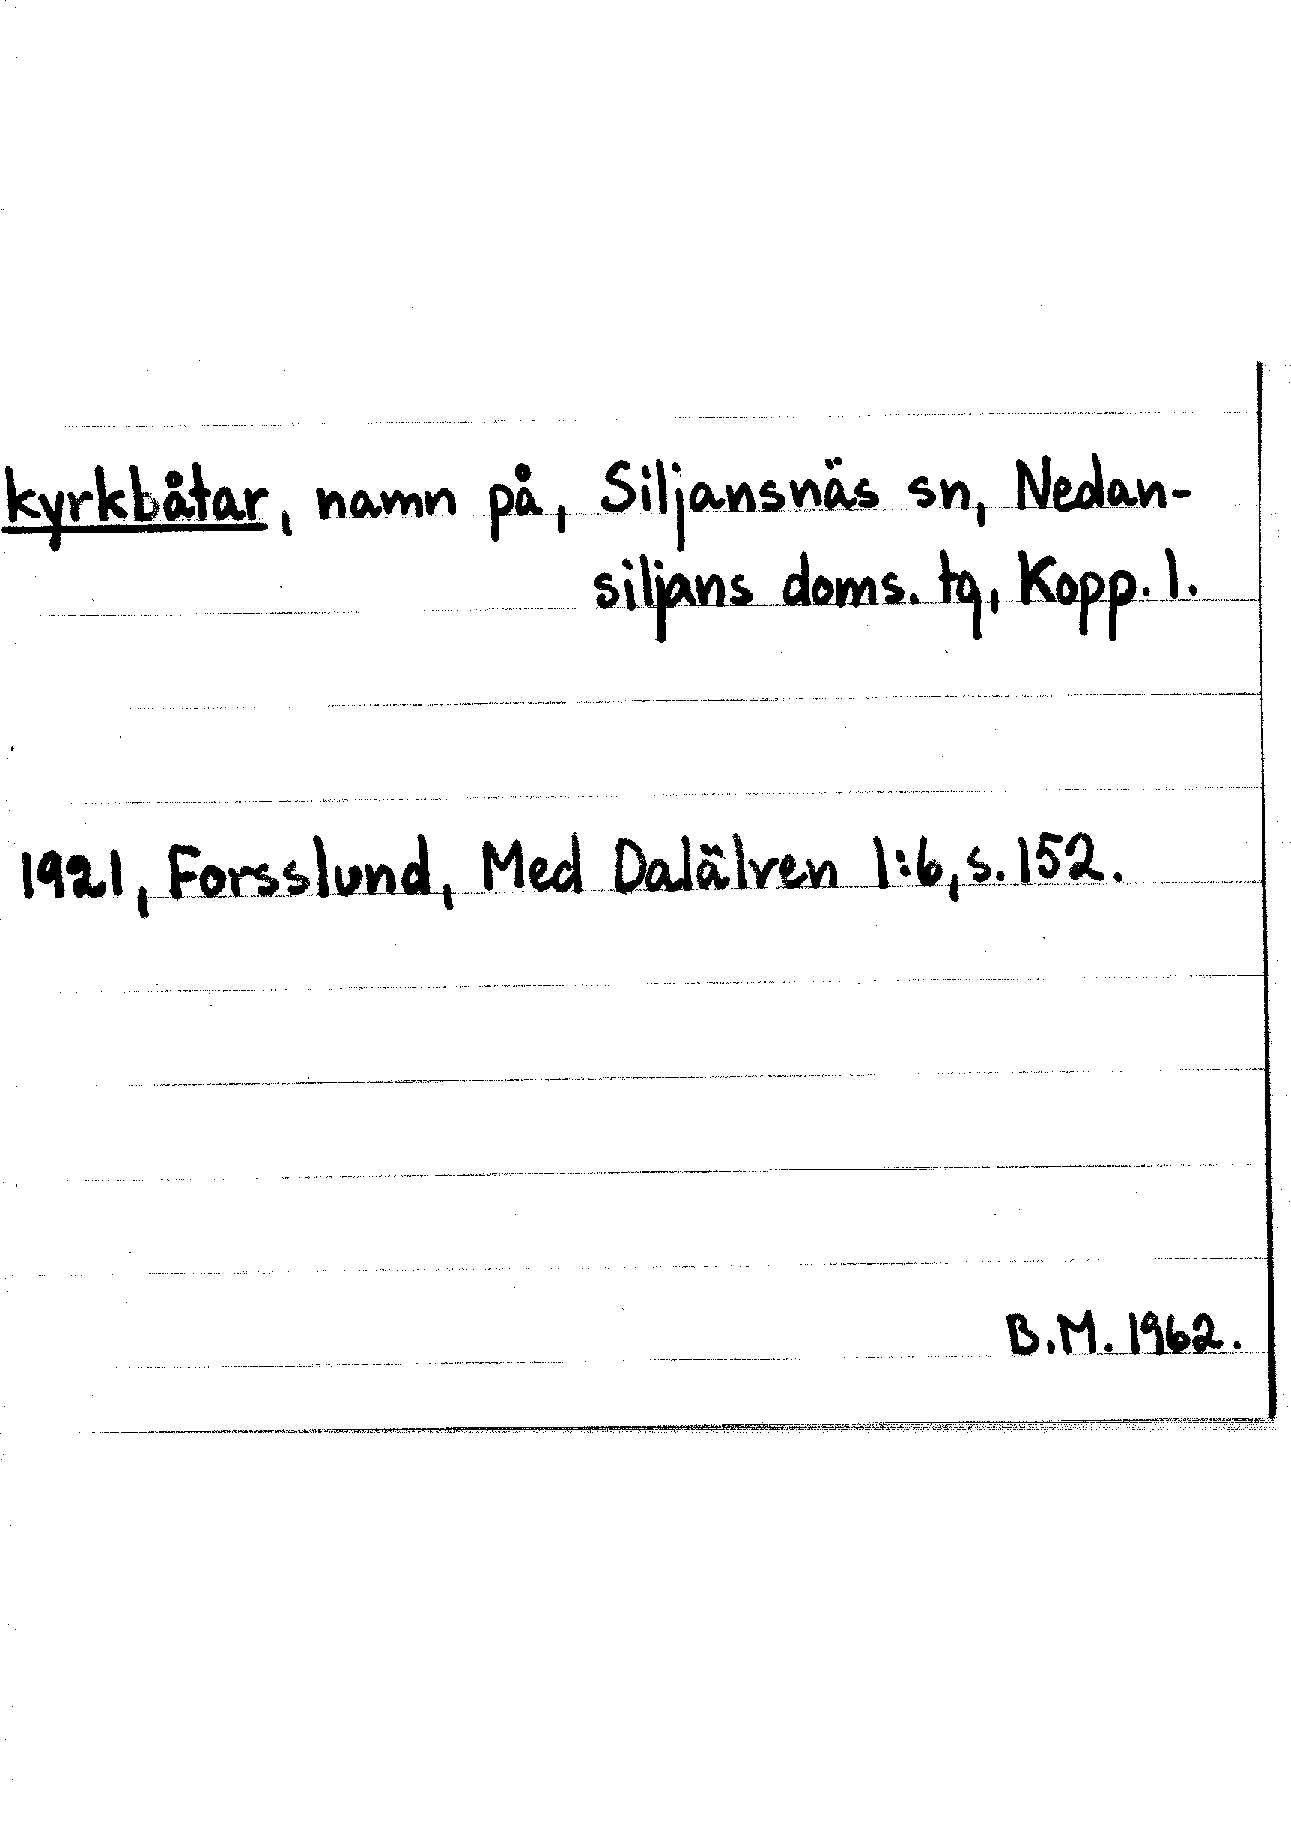 kyrkbåtar, namn på, Siljansnäs sn, Nedan-
siljans doms. tq, Kopp. l.
1921, Forsslund, Med Dalälven 1:6, s. 152.
B.M. 1962.